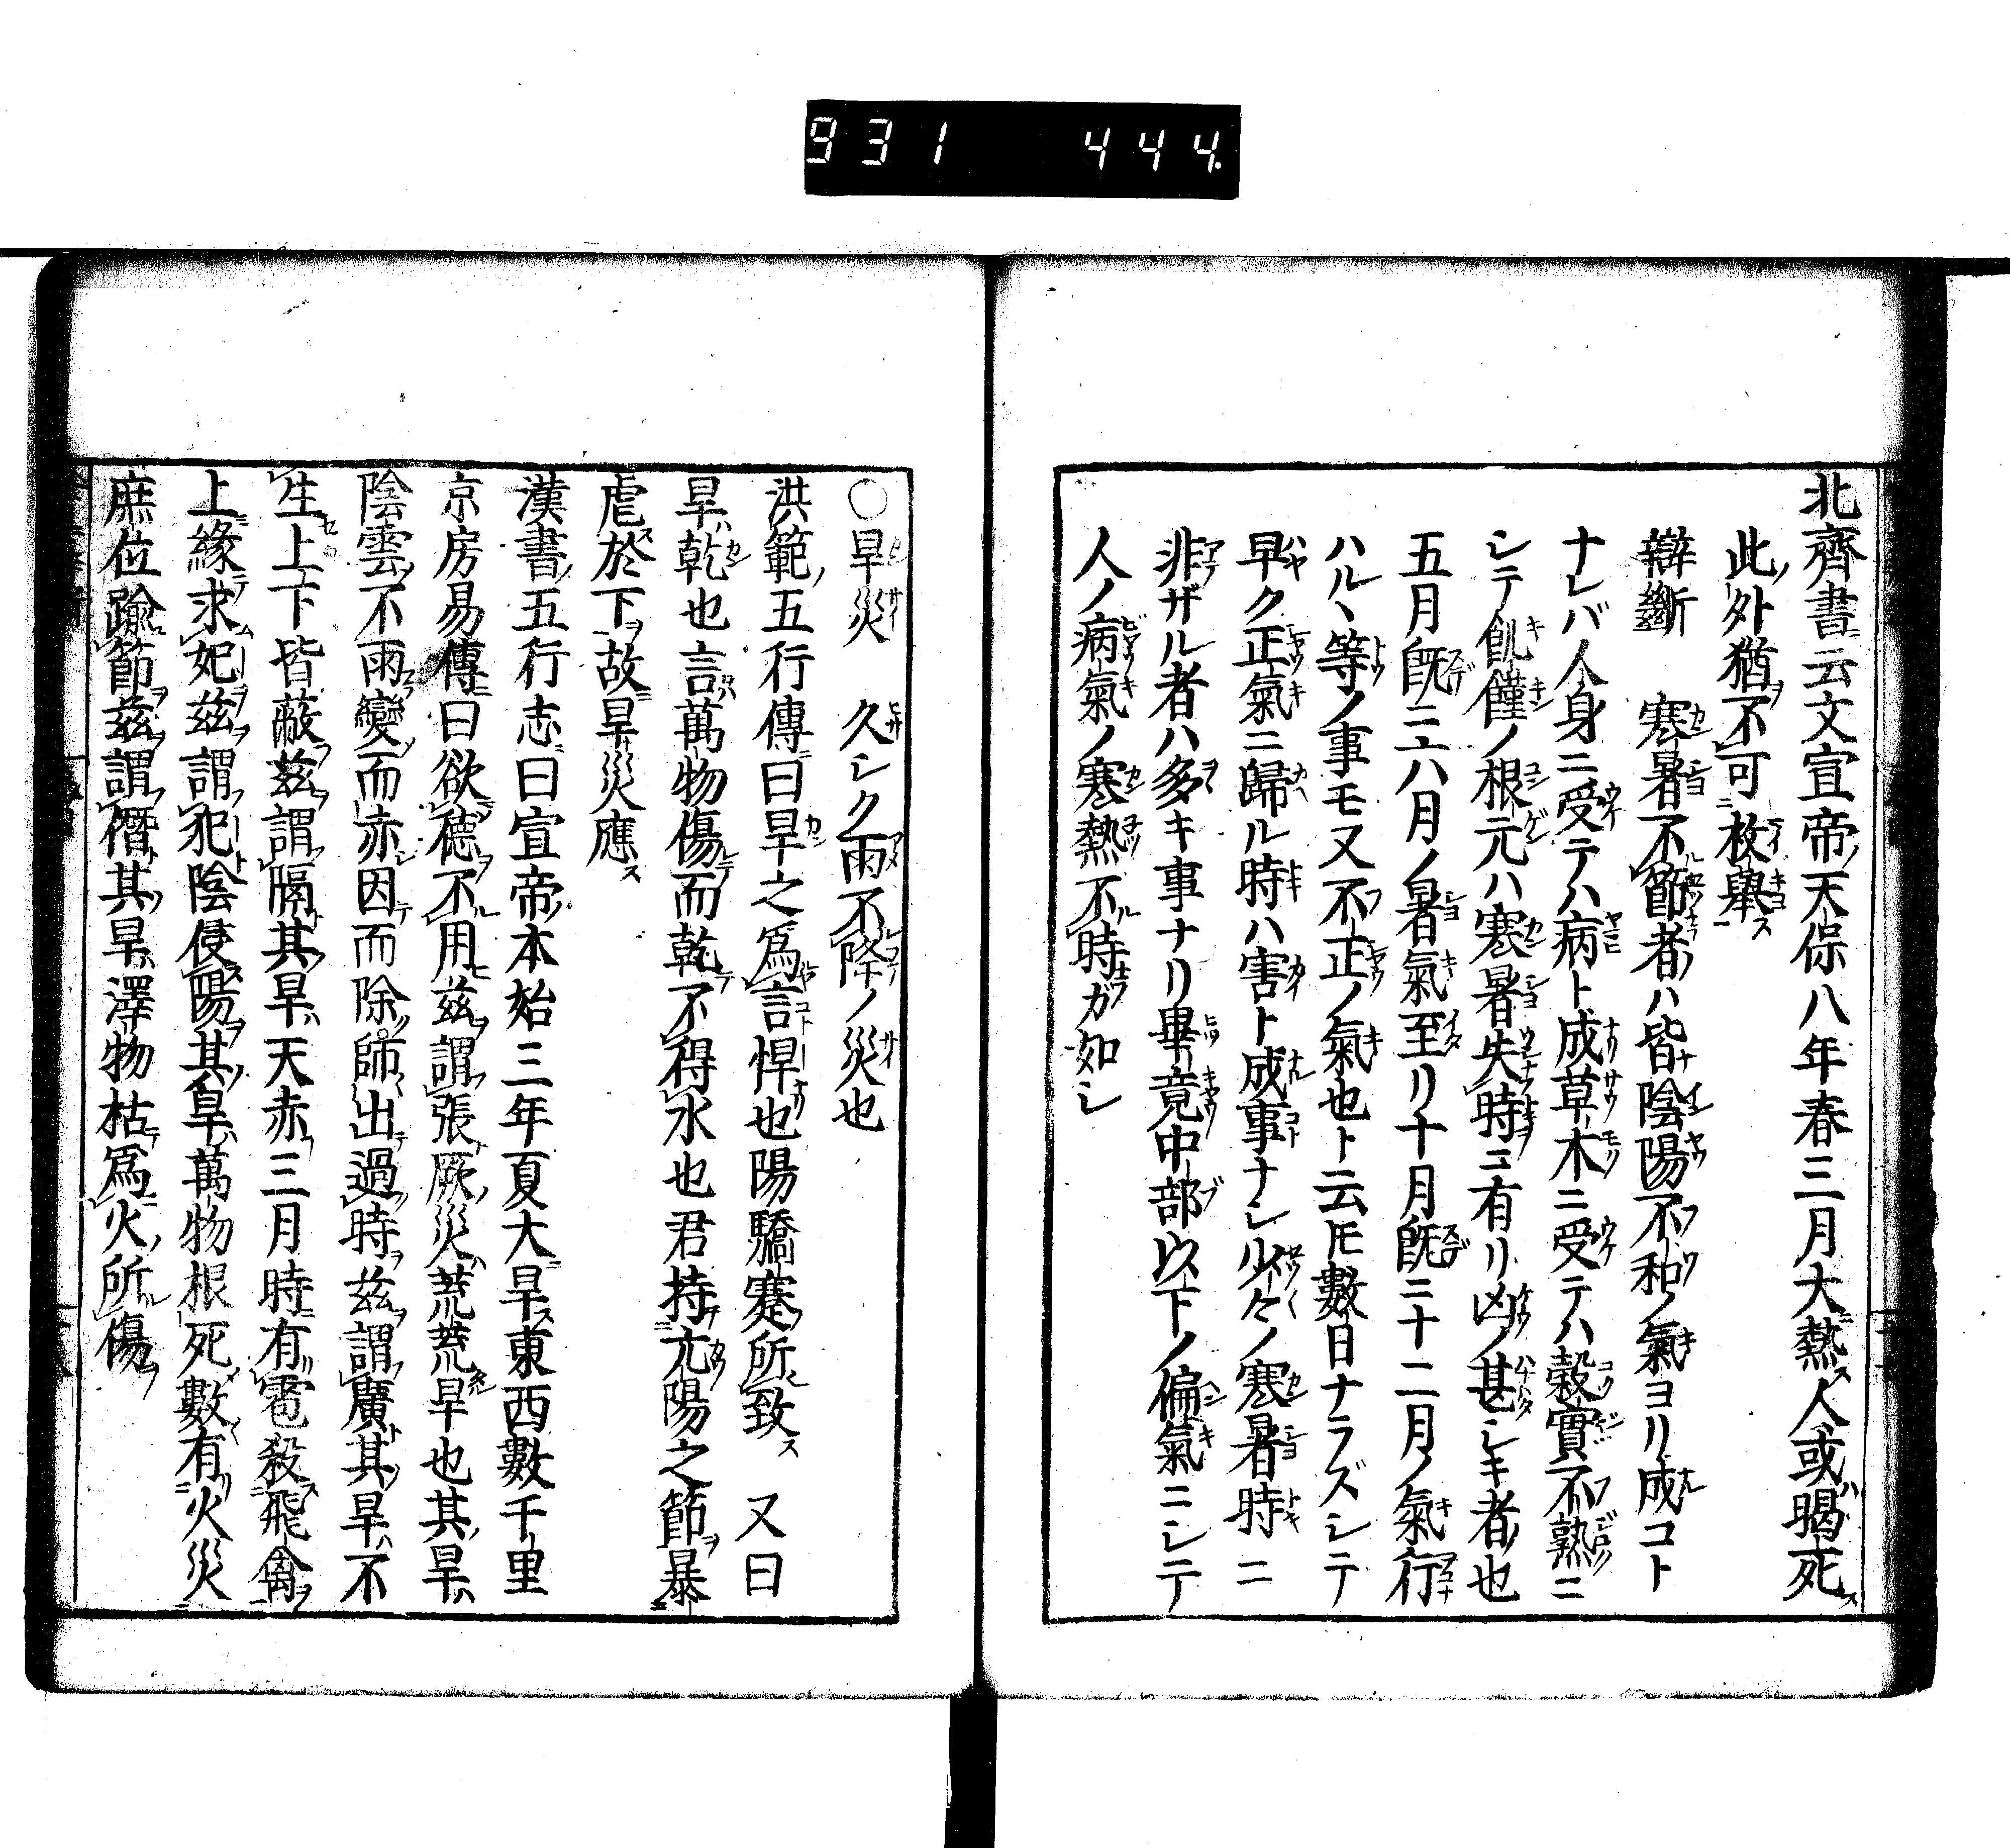 931 444.
北齊書云文宣帝天保八年春三月大熱人或暍死
此外猶不可枚舉
辯斷 寒暑不節者ハ皆陰陽不和ノ氣ヨリ成コト
ナレバ人身ニ受テハ病ト成草木ニ受テハ穀實不熟ニ
シテ飢饉ノ根元ハ寒暑失時ニ有リ凶ノ甚シキ者也
五月既ニ六月ノ暑氣至リ十月既ニ十二月ノ氣行
ハルヽ等ノ事モ又不正ノ氣也ト云𪜈數日ナラズシテ
早ク正氣ニ歸ル時ハ害ト成事ナシ少々ノ寒暑時ニ
非ザル者ハ多キ事ナリ畢竟中部以下ノ偏氣ニシテ
人ノ病氣ノ寒熱不時ガ如シ
○旱災 久シク雨不降ノ災也
洪範五行傳曰旱之爲言悍也陽驕蹇所致 又曰
旱乾也言萬物傷而乾不得水也君持亢陽之節暴
虐於下故旱災應
漢書五行志曰宣帝本始三年夏大旱東西數千里
京房易傳曰欲德不用茲謂張厥災荒荒旱也其旱
陰雲不雨變而赤因而除師出過時茲謂廣其旱不
生上下皆蔽茲謂隔其旱天赤三月時有雹殺飛禽
上緣求妃茲謂犯陰侵陽其旱萬物根死數有火災
庶位踰節茲謂僭其旱澤物枯爲火所傷